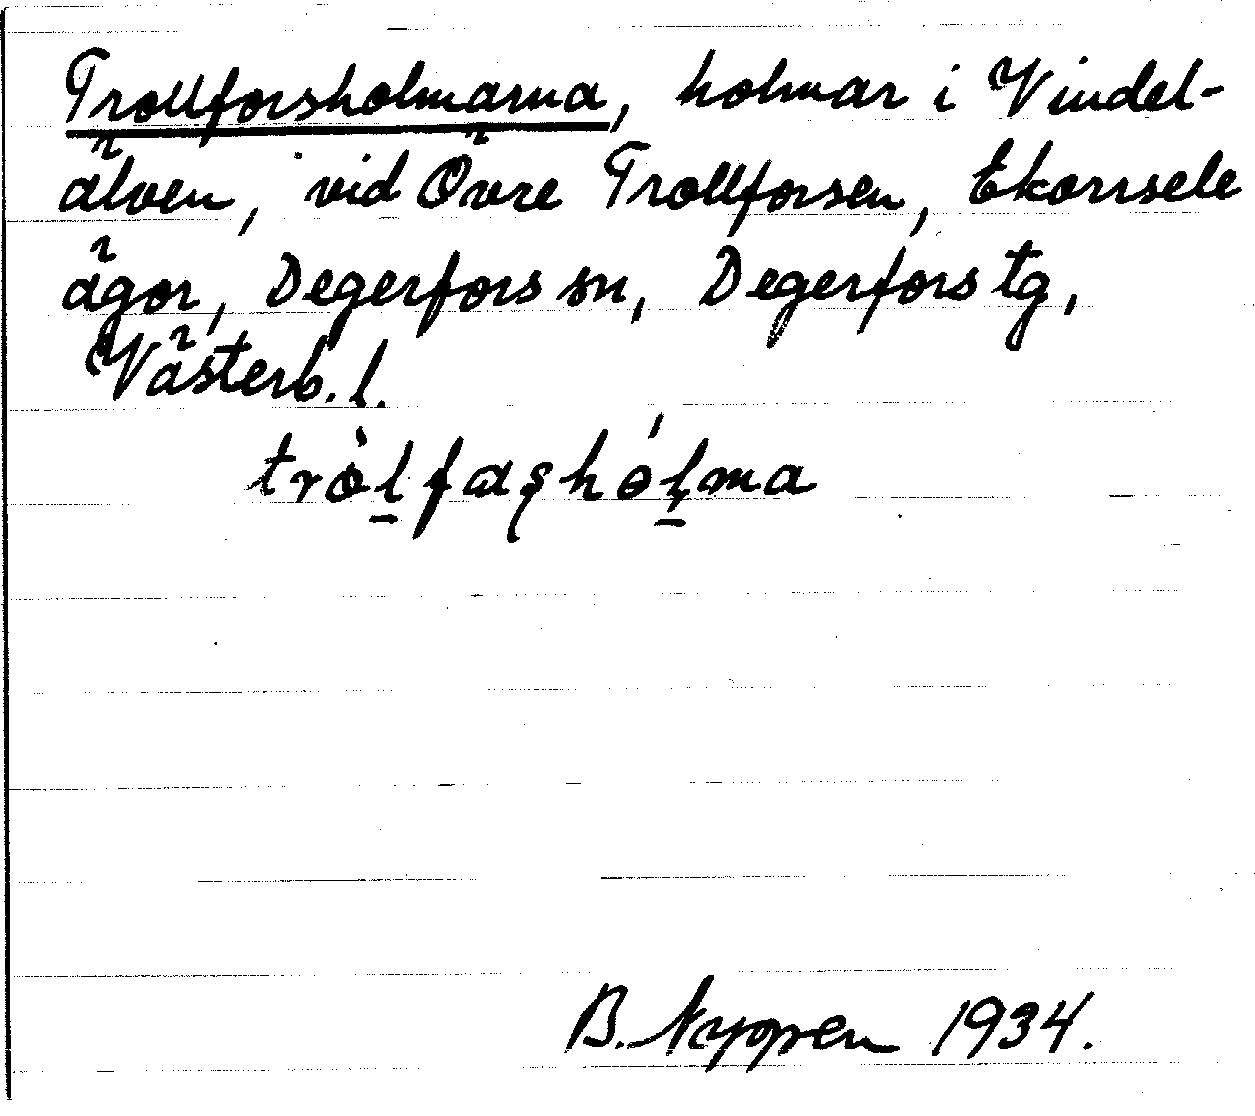 Trollforsholmarna, holmar i Vindel-
älven, vid Övre Trollforsen, Ekorrsele
ägor, Degerfors sn, Degerfors tg,
Västerb. l.
tròl̲faʂhól̲ma
B. Nyppen 1934.